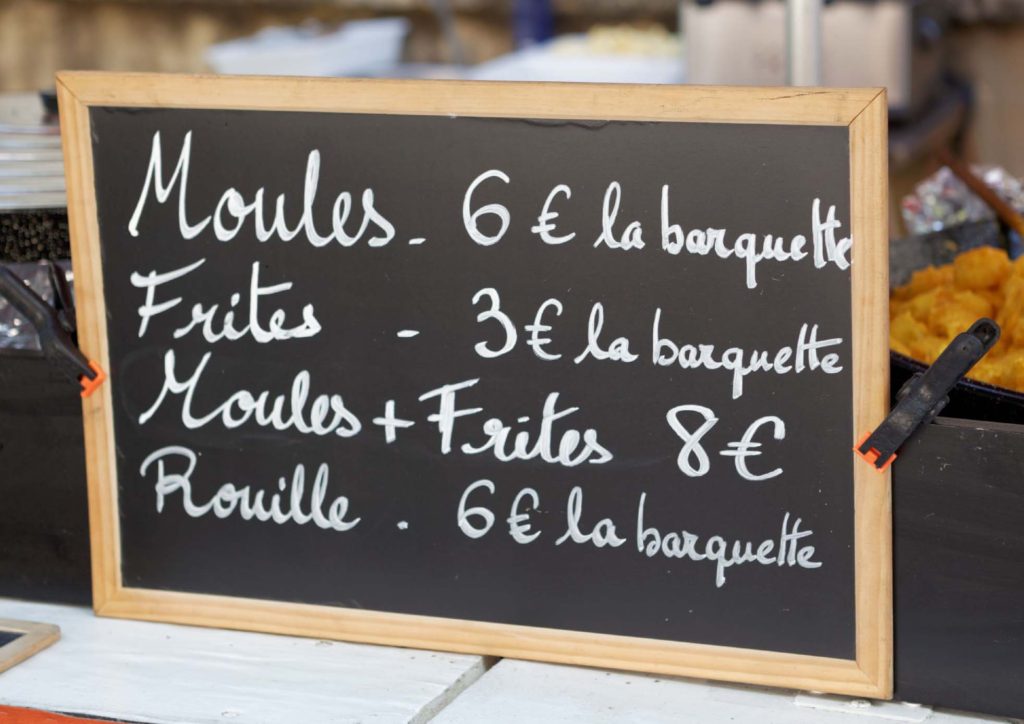 Moules - 6 € la barquette
Frites - 3 € la barquette
Moules + Frites 8 €
Rouille . 6 € la barquette